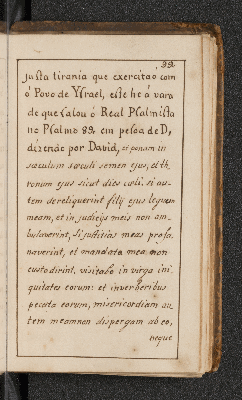 99
justa tirania que exercitao com
ó Povo de Ysrael, este he á vara
de que falou ó Real Psalmista
no Psalmo 89, em pesoa de D,
dizendo por David, et ponam in
sæculum sæculi semen ejus, et th
ronum ejus sicut dies cæli. si au
tem dereliquerint filij ejus legem
meam, et in judicijs meis non am
bulaverint, Si justitias meas profa
naverint, et mandata mea non
custodirint, visitabo in virga ini
quitates eorum: et in verberibus
pecata eorum, misericordiam au
tem meam non dispergam ab eo,
neque